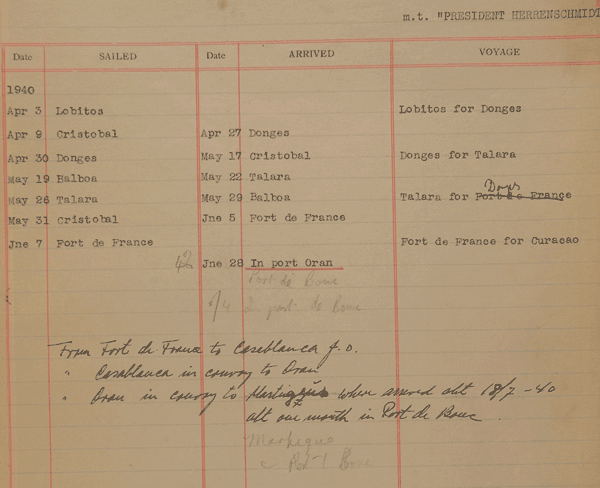 m.t. "PRESIDENT HERRENSCHMIDT
Date SAILED Date ARRIVED VOYAGE
1940
Apr 3 Lobitos Lobitos for Donges
Apr 9 Cristobal Apr 27 Donges
Apr 30 Donges May 17 Cristobal Donges for Talara
May 19 Balboa May 22 Talara
Donges
May 26 Talara May 29 Balboa Talara for Fort de France
May 31 Cristobal Jne 5 Fort de France
Jne 7 Fort de France Fort de France for Curacao
42 Jne 28 In port Oran
Port de Bouc
8/4 2 port de Bouc
From Fort de France to Casablanca f.o.
" Casablanca in convoy to Oran
" Oran in convoy to where arrived abt 18/7 -40
abt one month in Port de Bouc.
Bouc